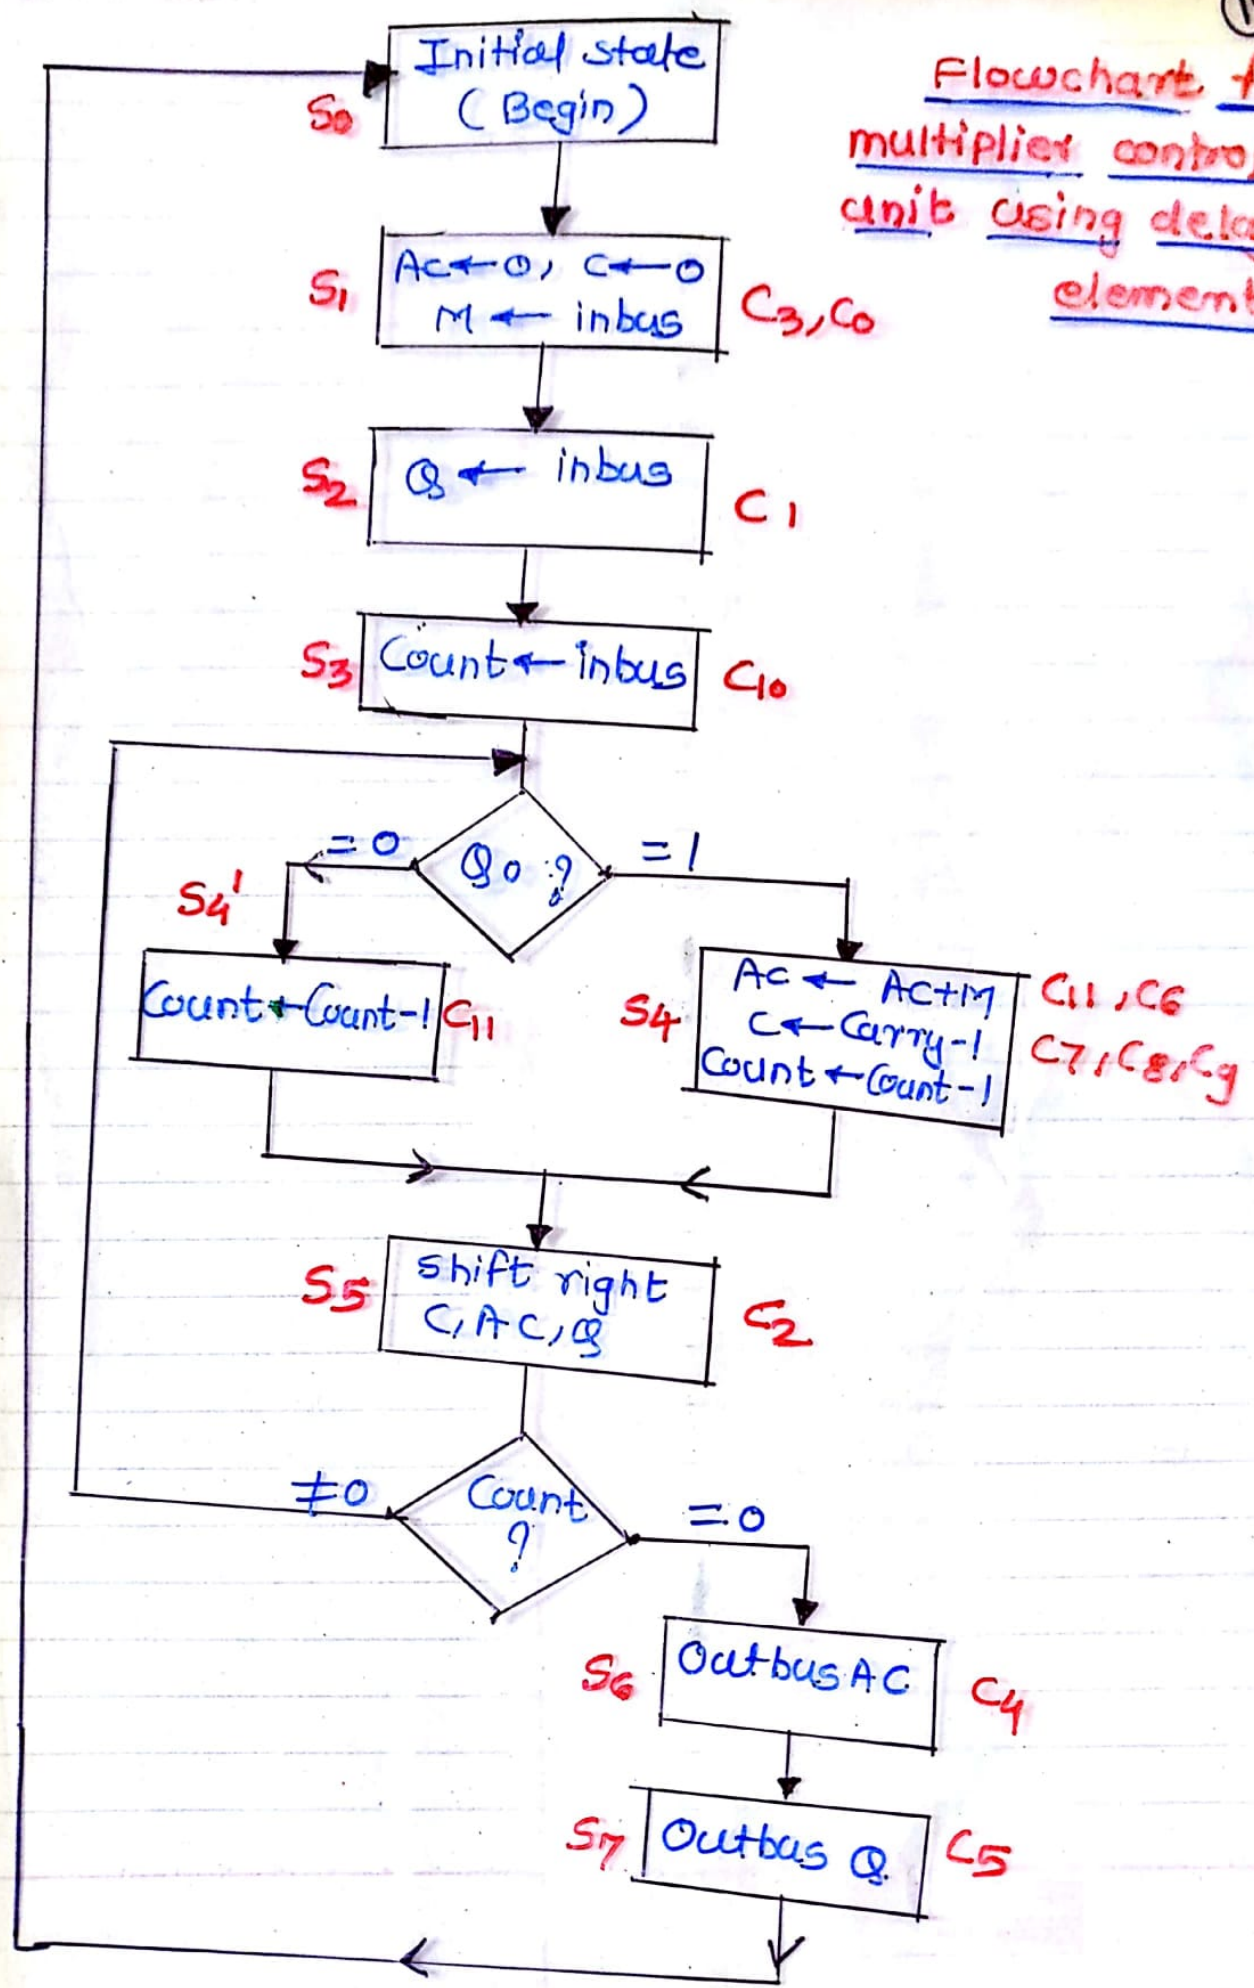 Flowchart
multiplier
unit using
Initial state
(Begin)
S0
AC←0, C←0
M ← inbus
S1
C3, C0
Q ← inbus
S2
C1
S3
Count ← inbus
C10
=0
Q0 ?
=1
S4'
Count ← Count-1
C11
S4
AC ← AC+M
C ← Carry-1
Count ← Count-1
C11, C6
C7, C8, C9
S5
shift right
C, AC, Q
C2
≠0
Count
?
=0
S6
Outbus AC
C4
S7
Outbus Q
C5